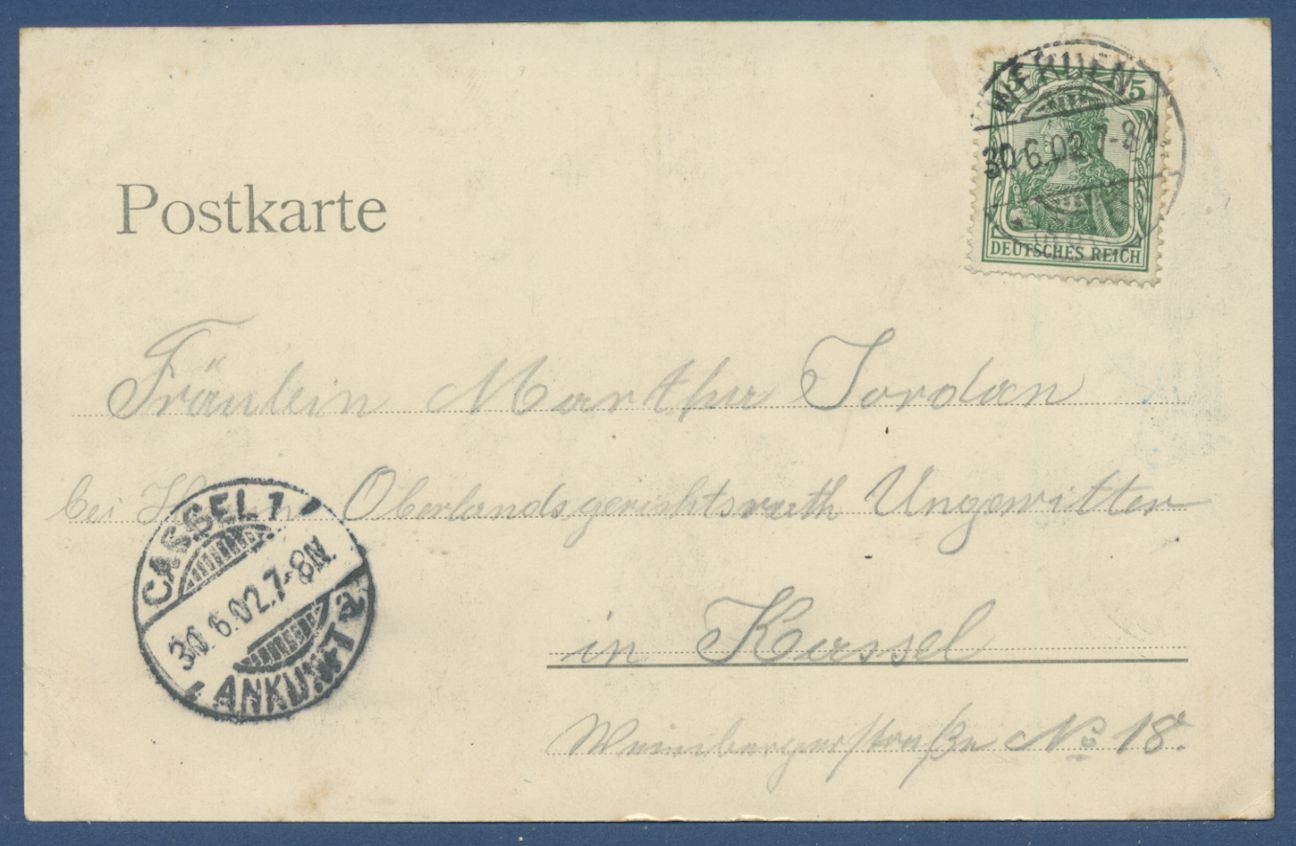 5
WERDEN
30.6.02.7-8N
DEUTSCHES REICH
Postkarte
Fräulein Martha Jordan
bei Herrn Oberlandsgerichtsrath Ungewitter
in Kassel
Weinbergerstraße No 18.
CASSEL 1
30.6.02.7-8N.
ANKUNFT